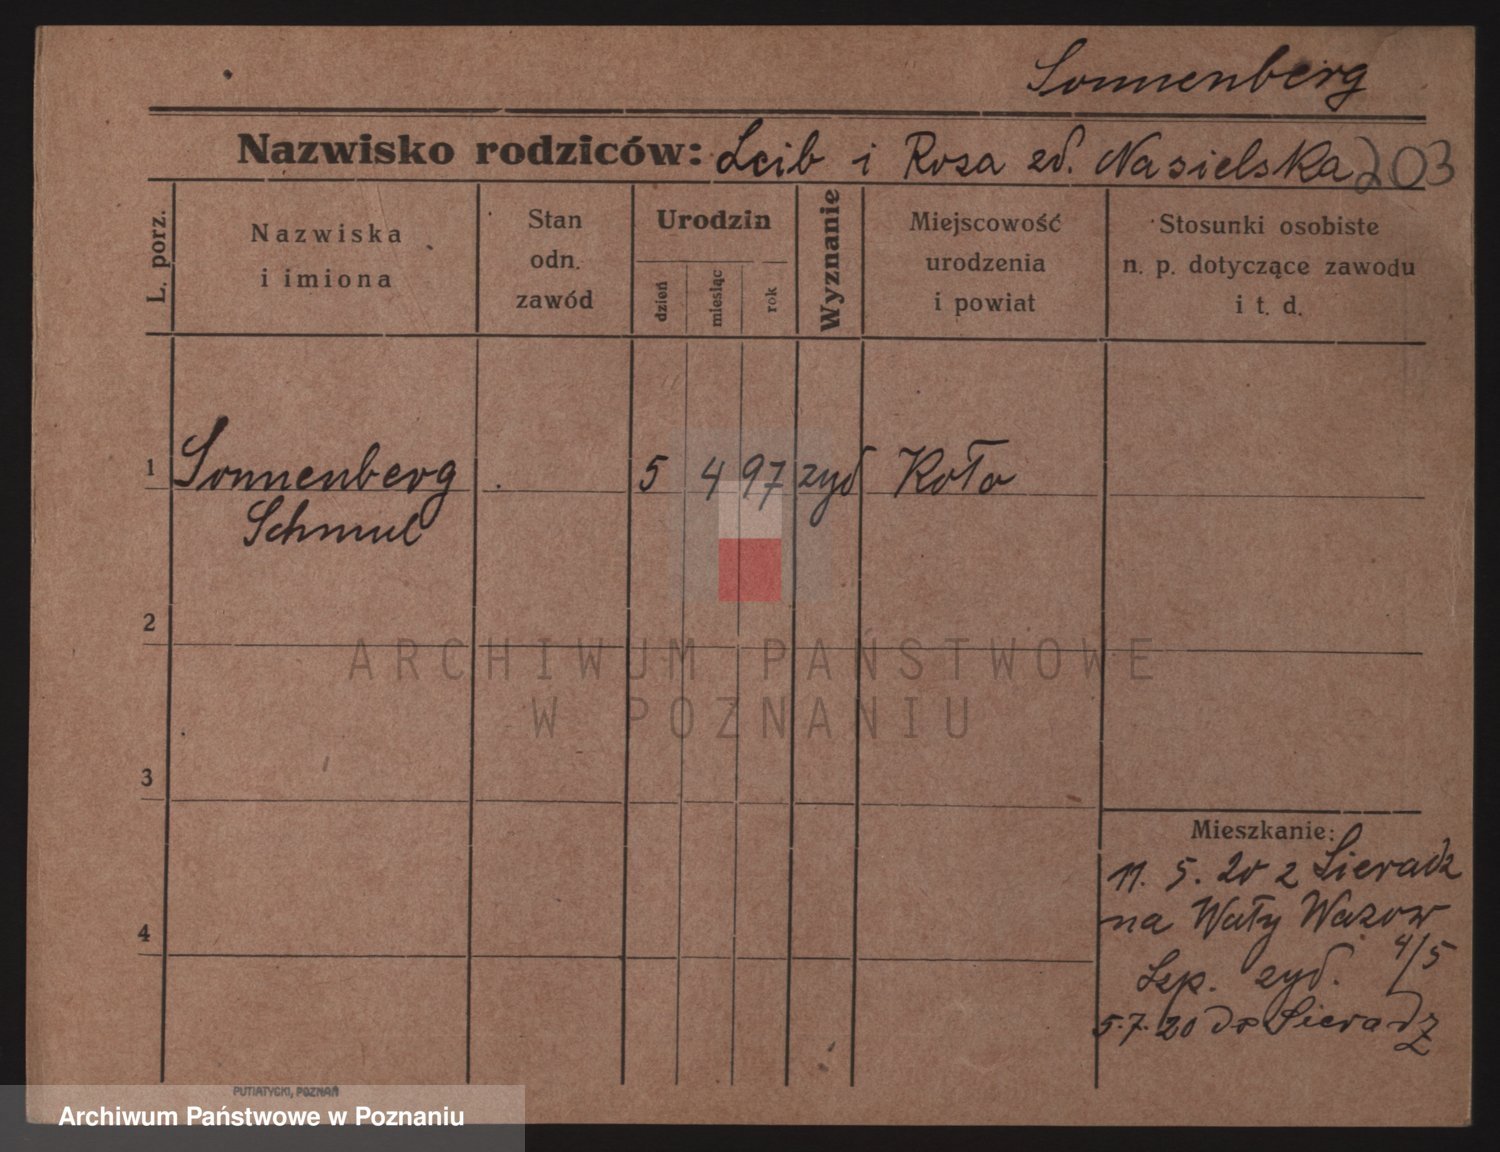 Sonnenberg
Nazwisko rodziców: Leib i Rosa zd. Nasielska 203
L. porz.
Nazwiska
i imiona
Stan
odn.
zawód
Urodzin
dzień
miesiąc
rok
Wyznanie
Miejscowość
urodzenia
i powiat
Stosunki osobiste
n. p. dotyczące zawodu
i t. d.
1 Sonnenberg 5 4 97 zyd Koło
Schmul
2
3
4
Mieszkanie:
11. 5. 20 z Sieradz
na Wały Wazow
4/5
Szp. zyd.
5.7.20 do Sieradz
PUTIATYCKI, POZNAŃ
ARCHIWUM PAŃSTWOWE
W POZNANIU
Archiwum Państwowe w Poznaniu